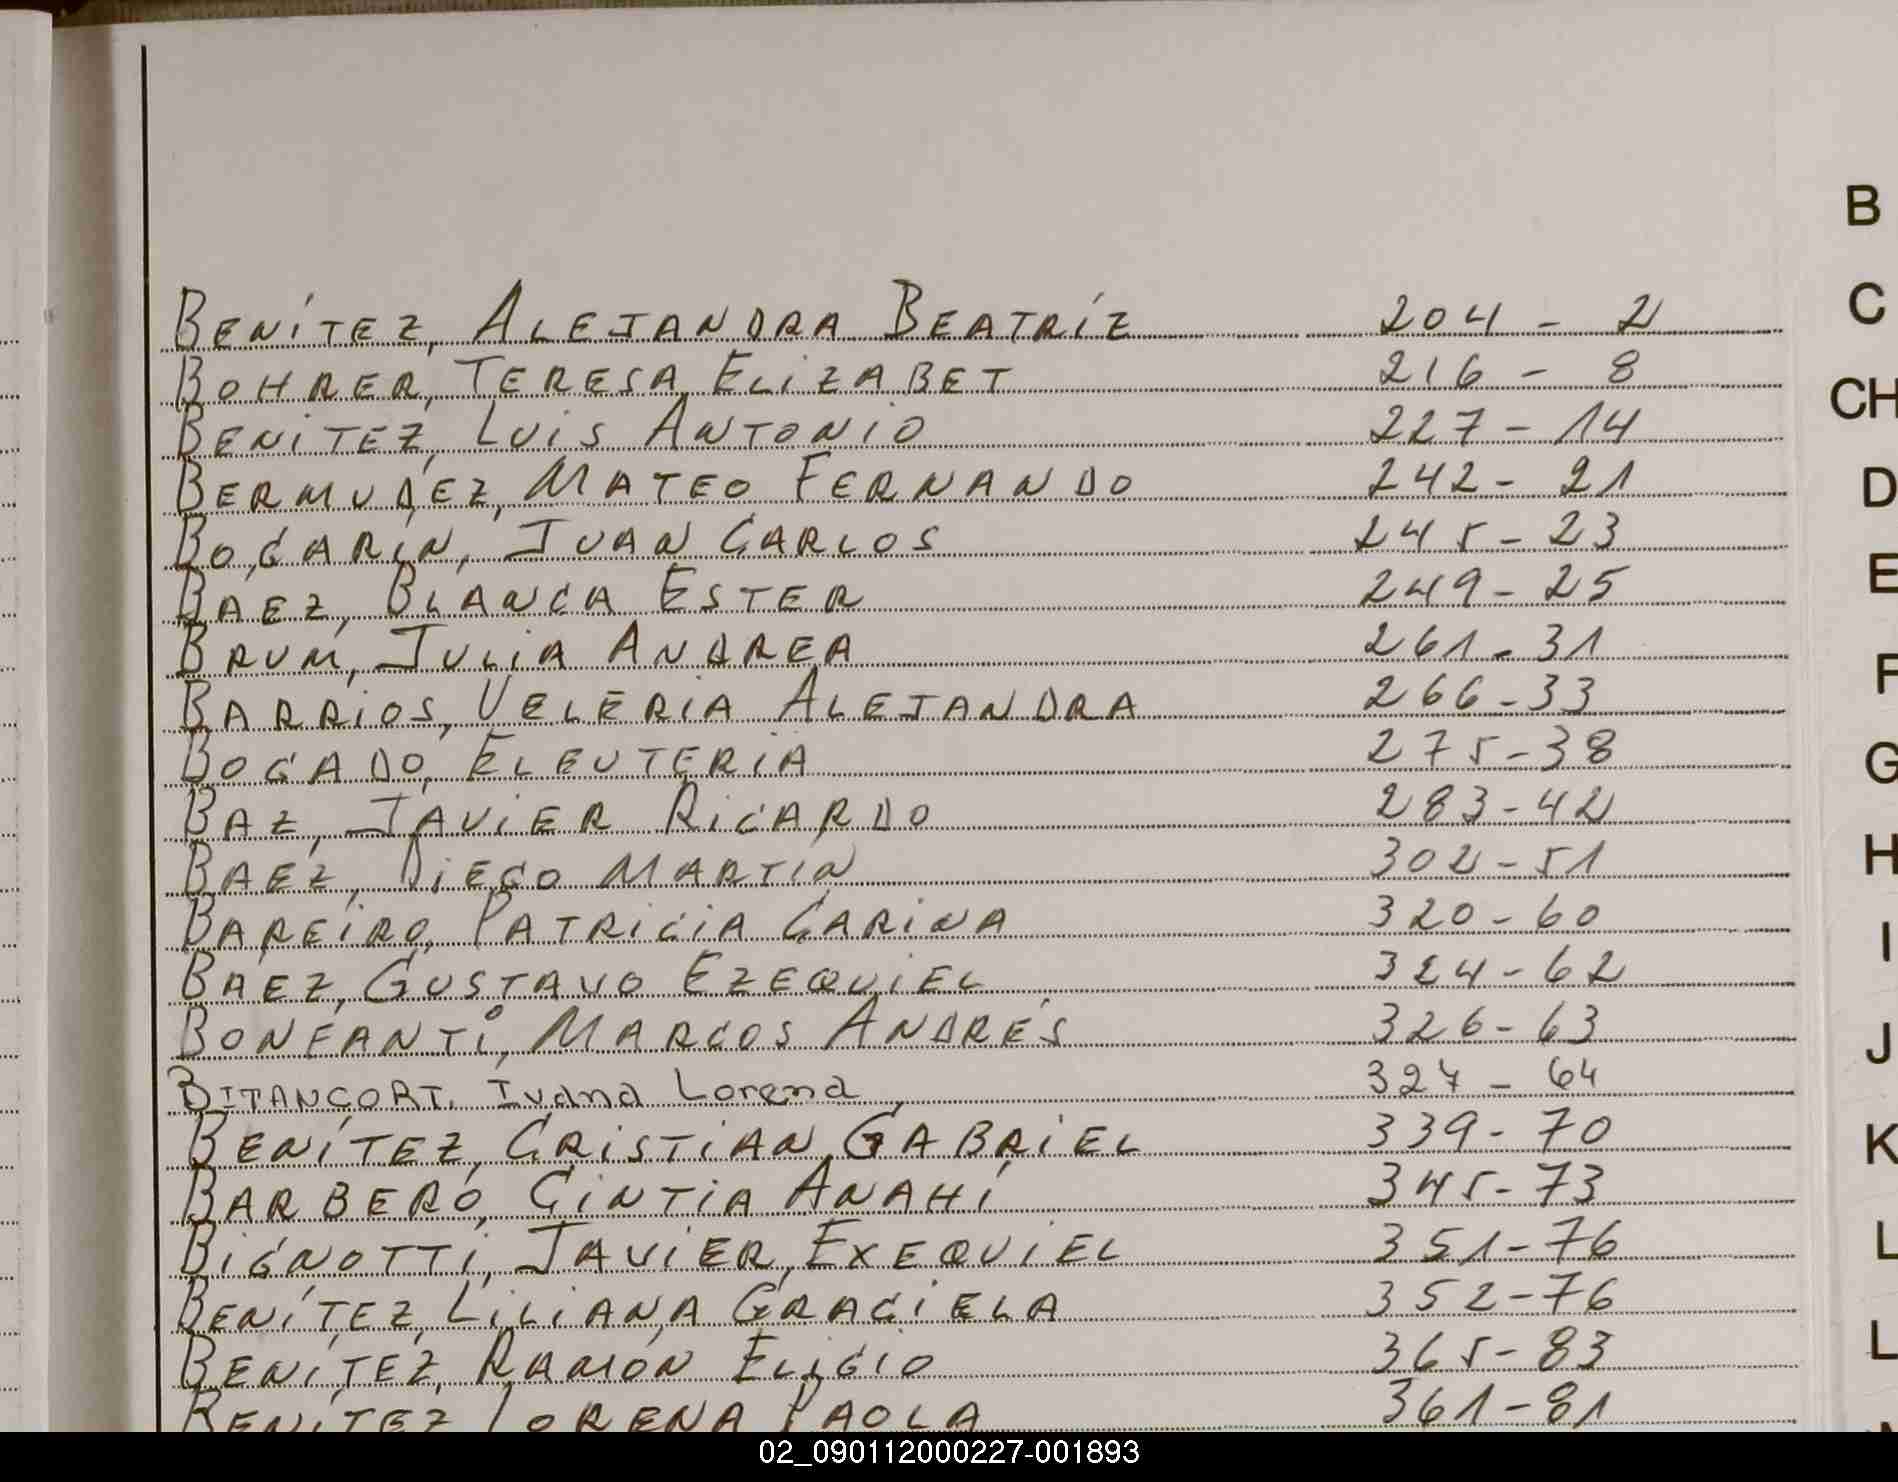 BENÍTEZ, ALEJANDRA BEATRÍZ 204 - 2
BOHRER, TERESA ELIZABET 216 - 8
BENITEZ, LUIS ANTONIO 227 - 14
BERMUDEZ, MATEO FERNANDO 242 - 21
BOGARIN, JUAN CARLOS 245 - 23
BAEZ, BLANCA ESTER 249 - 25
BRUM, JULIA ANDREA 261 - 31
BARRIOS, VELERIA ALEJANDRA 266 - 33
BOGADO, ELEUTERIA 275 - 38
BAZ, JAVIER RICARDO 283 - 42
BAEZ, DIEGO MARTÍN 302 - 51
BAREIRO, PATRICIA CARINA 320 - 60
BAEZ, GUSTAVO EZEQUIEL 324 - 62
BONFANTI, MARCOS ANDRÉS 326 - 63
BITANCORT, Ivana Lorena 327 - 64
BENÍTEZ, CRISTIAN GABRIEL 339 - 70
BARBERO, CINTIA ANAHÍ 345 - 73
BIGNOTTI, JAVIER EXEQUIEL 351 - 76
BENÍTEZ, LILIANA GRACIELA 352 - 76
BENÍTEZ, RAMÓN ELIGIO 365 - 83
BENÍTEZ LORENA PAOLA 361 - 81
B
C
CH
D
E
F
G
H
I
J
K
L
L
02_090112000227-001893